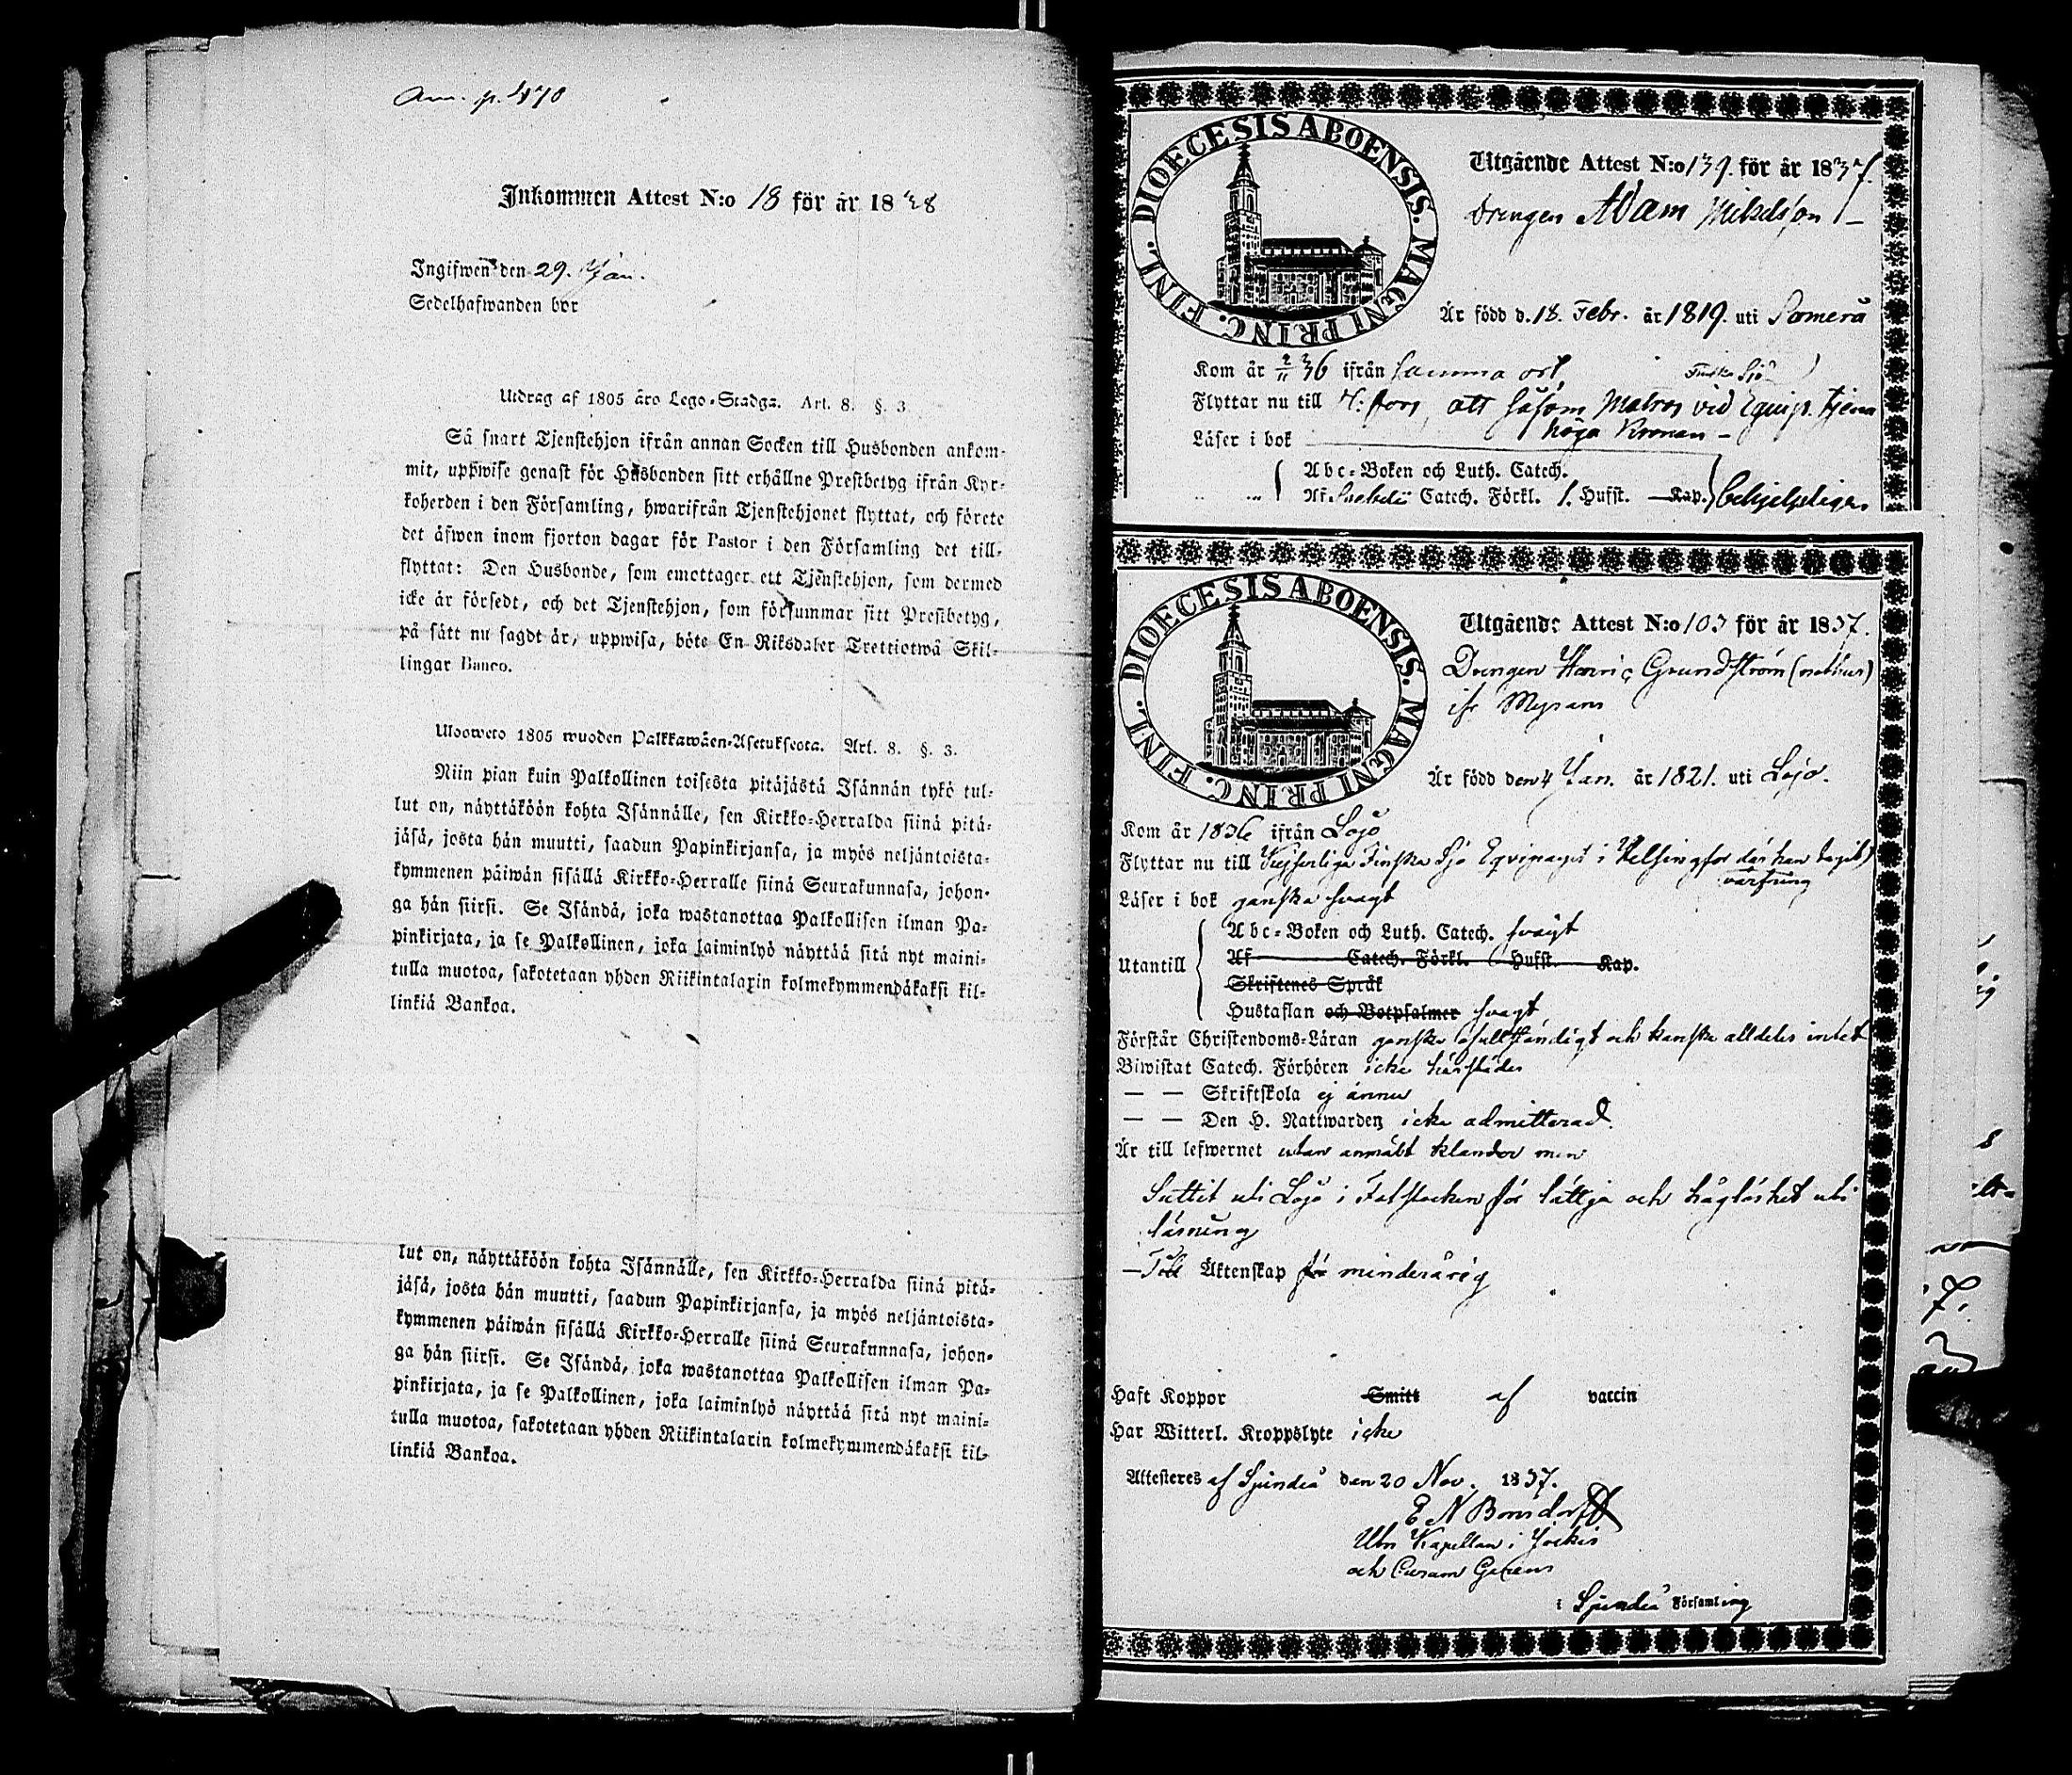 Ann. p. 470
Inkommen Attest N:o 18 för år 1838
Ingifwen den 29. Jan.
Sedelhafwanden bor
Utdrag af 1805 års Lego-Stadga. Art. 8. §. 3.
Så snart Tjenstehjon ifrån annan Socken till Husbonden ankom-
mit, uppwise genast för Husbonden sitt erhållne Prestbetyg ifrån Kyr-
koherden i den Församling, hwarifrån Tjenstehjonet flyttat, och förete
det äfwen inom fjorton dagar för Pastor i den Församling det till-
flyttat: Den Husbonde, som emottager ett Tjenstehjon, som dermed
icke är försedt, och det Tjenstehjon, som försummar sitt Prestbetyg,
på sätt nu sagdt är, uppwisa, böte En Riksdaler Trettiotwå Skil-
lingar Banco.
Ulosweto 1805 wuoden Palkkawäen-Asetuksesta. Art. 8. §. 3.
Niin pian kuin Palkollinen toisesta pitäjästä Isännän tykö tul-
lut on, näyttäköön kohta Isännälle, sen Kirkko-Herralda siinä pitä-
jäsä, josta hän muutti, saadun Papinkirjansa, ja myös neljäntoista-
kymmenen päiwän sisällä Kirkko-Herralle siinä Seurakunnasa, johon-
ga hän siirsi. Se Isändä, joka wastanottaa Palkollisen ilman Pa-
pinkirjata, ja se Palkollinen, joka laiminlyö näyttää sitä nyt maini-
tulla muotoa, sakotetaan yhden Riikintalarin kolmekymmendäkaksi kil-
linkiä Bankoa.
lut on, näyttäköön kohta Isännälle, sen Kirkko-Herralda siinä pitä-
jäsä, josta hän muutti, saadun Papinkirjansa, ja myös neljäntoista-
kymmenen päiwän sisällä Kirkko-Herralle siinä Seurakunnasa, johon-
ga hän siirsi. Se Isändä, joka wastanottaa Palkollisen ilman Pa-
pinkirjata, ja se Palkollinen, joka laiminlyö näyttää sitä nyt maini-
tulla muotoa, sakotetaan yhden Riikintalarin kolmekymmendäkaksi kil-
linkiä Bankoa.
DIOECESIS ABOENSIS. MAGNI PRINC. FINL.
Utgående Attest N:o 139. för år 1837.
Drengen Adam Mikelsson
Är född d. 18. Febr. år 1819. uti Somero
Kom år 2/11 36 ifrån samma ort
Finska Sjö
Flyttar nu till H:fors, att såsom Matros vid Equip. tjena
höga Kronan
Läser i bok
Abc-Boken och Luth. Catech.
Af Svebelii Catech. Förkl. 1. Hufst. Kap. behjelpligen
DIOECESIS ABOENSIS. MAGNI PRINC. FINL.
Utgående Attest N:o 103 för år 1837.
Drengen Henric Grundström
ifr Myrans
Är född den 4 Jan. år 1821. uti Lojo.
Kom år 1836 ifrån Lojo
Flyttar nu till Kejserliga Finska Sjö Eqvipaget i Helsingfor där han tagit
värfning
Läser i bok ganska svagt
Utantill
Abc-Boken och Luth. Catech. svagt
Af Catech. Förkl. Hufst. Kap.
Skriftenes Språk
Hustaflan och Botpsalmer svagt
Förstår Christendoms-Läran ganska ofullständigt och kanske alldeles intet
Biwistat Catech. Förhören icke härstädes
— — Skriftskola ej ännu
— — Den H. Nattwarden icke admitterad.
Är till lefwernet utan anmält klander men
Suttit uti Lojo i Fotstocken för lättja och håglöshet uti
läsning
Till Äktenskap för minderårig
Haft Koppor Smitt af vaccin
Har Witterl. Kroppslyte icke
Attesteres af Sjundeå den 20 Nov. 1837.
E N Bonsdorff
Utn Kapellan i Jockis
och Curam Gerens
i Sjundeå Församling